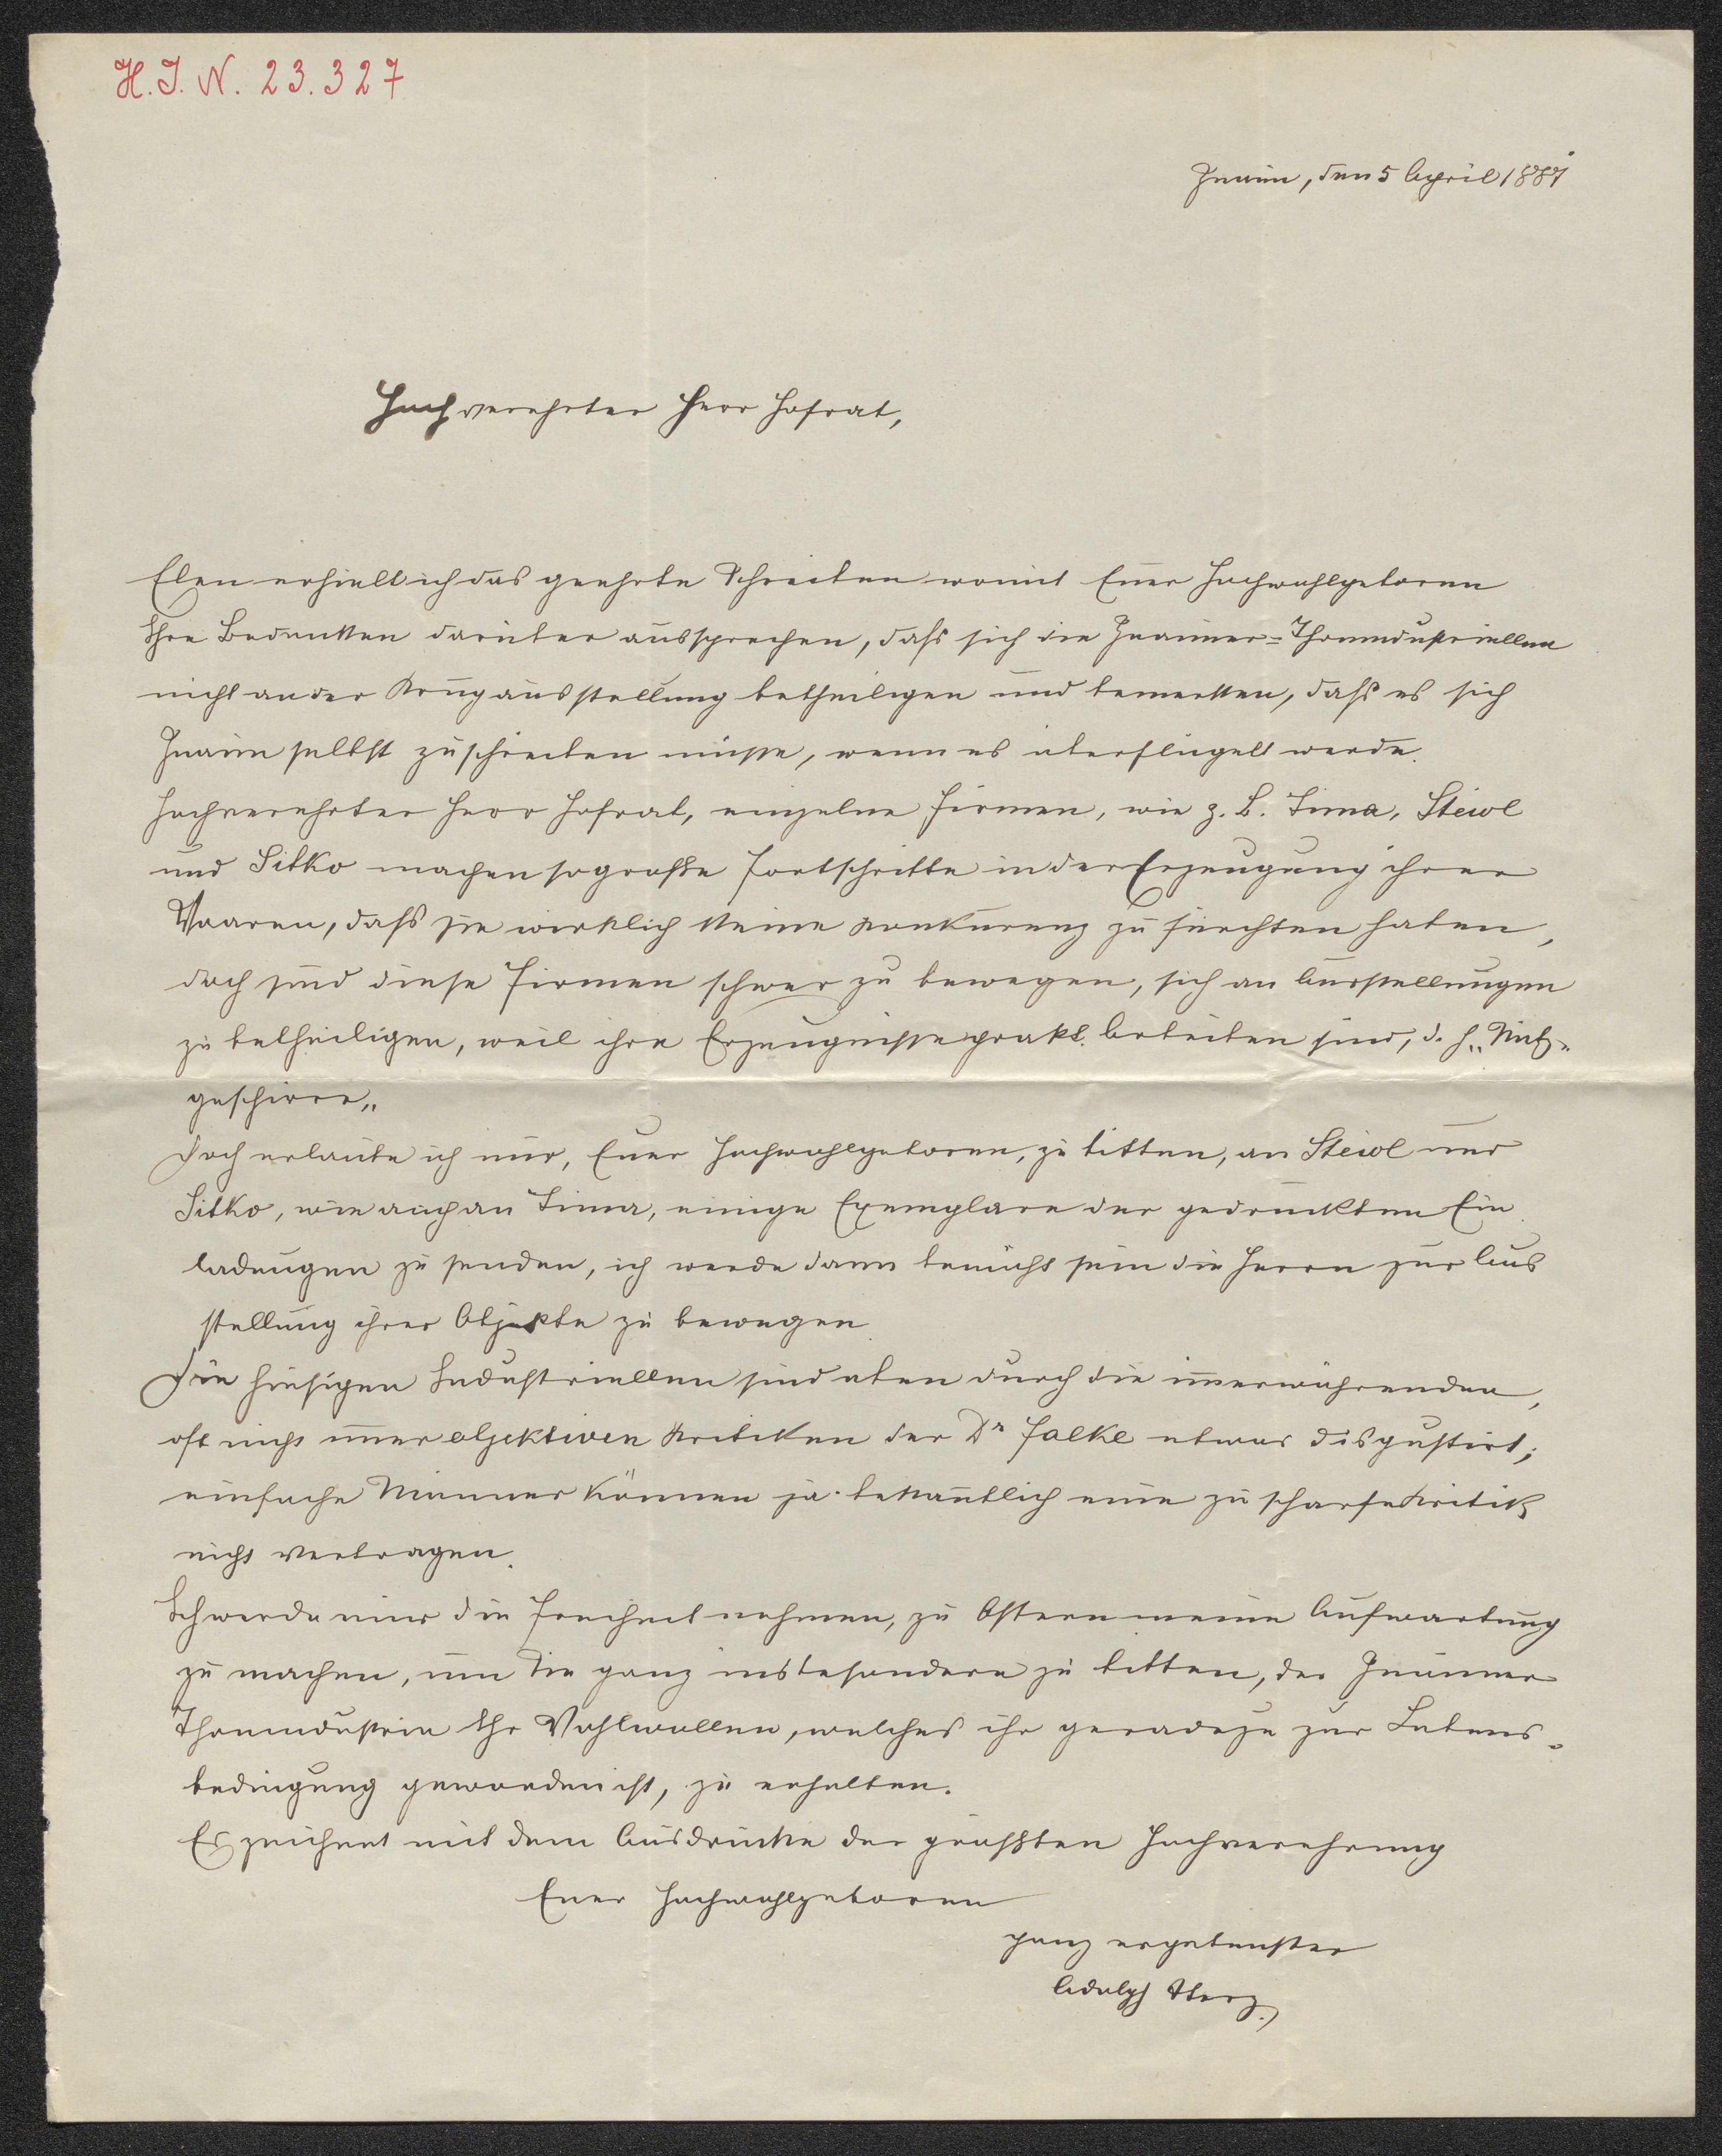 H.I.N. 23.327
Znaim, den 5 April 1887
Hochverehrter Herr Hofrat,
Eben erhielt ich das geehrte Schreiben womit Euer Hochwohlgeboren
Ihre Bedenken darüber aussprechen, daß sich die Znaimer-Thonindustriellen
nicht an der Krugausstellung betheiligen und bemerken, daß es sich
Znaim selbst zuschreiben müsse, wenn es überflügelt werde.
Hochverehrter Herr Hofrat, einzelne Firmen, wie z. B. Lima, Steidl
und Sitko machen so große Fortschritte in der Erzeugung ihrer
Waaren, daß sie wirklich keine Konkurenz zu fürchten haben,
doch sind diese Firmen schwer zu bewegen, sich an Ausstellungen
zu betheiligen, weil ihre Erzeugnisse prakt. Arbeiten sind, d. h. „Nutz-
geschirre„
Doch erlaube ich mir, Euer Hochwohlgeboren, zu bitten, an Steidl und
Sitko, wie auch an Lima, einige Exemplare der gedruckten Ein
ladungen zu senden, ich werde dann bemüht sein die Herrn zur Aus
stellung ihrer Objekte zu bewegen
Die hiesigen Industriellen sind eben durch die immerwährenden,
oft nicht immer objektiven Kritiken der Dr Falke etwas disgustirt;
einfache Männer können ja bekanntlich eine zu scharfe Kritik
nicht vertragen.
Ich werde mir die Freiheit nehmen, zu Ostern meine Aufwartung
zu machen, um Sie ganz insbesondere zu bitten, der Znaimer
Thonindustrie Ihr Wohlwollen, welches ihr geradezu zur Lebens-
bedingung geworden ist, zu erhalten.
Es zeichnet mit dem Ausdrucke der größten Hochverehrung
Euer Hochwohlgeboren
ganz ergebenster
Adolph Sterz